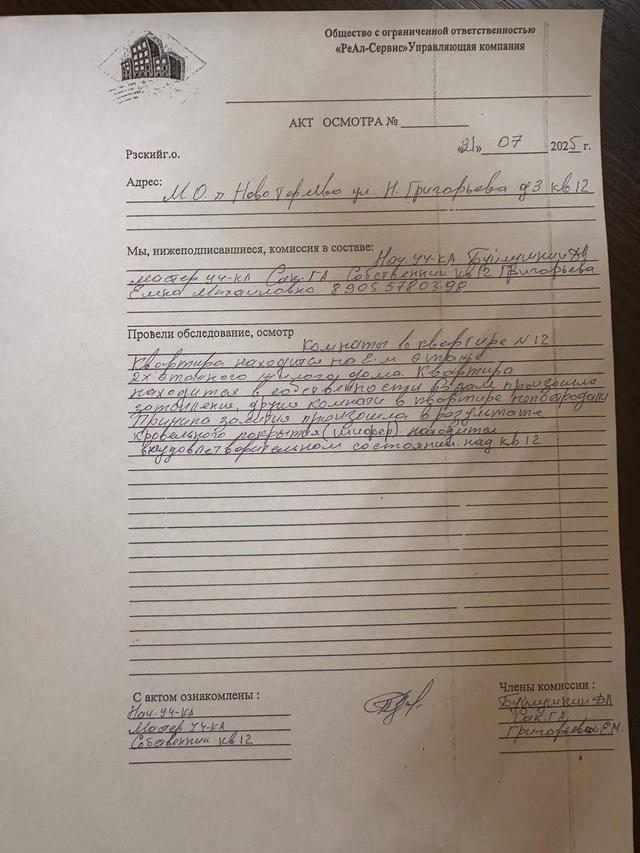 Общество с ограниченной ответственностью
«РеАл-Сервис»Управляющая компания
АКТ ОСМОТРА №
«21» 07 2025 г.
Рзскийг.о.
Адрес:
М.О. п. Ново Терново ул. Н. Григорьева д 3 кв 12
Мы, нижеподписавшиеся, комиссия в составе:
Нач. уч-ка
мастер уч-ка Сак. Г.А Собственник кв 12 Григорьева
Елена Михайловна 8 905 578 03 98
Провели обследование, осмотр
комнаты в квартире N 12
Квартира находится на 2-м этаже
2х этажного жилого дома. Квартира
находится в собственности. В зале произошло
затопление, другие комнаты в квартире непострадали
Причина залития произошла в результате
кровельного покрытья (шифер) находится
внеудовлетворительном состоянии. над кв 12
С актом ознакомлены :
Нач. уч-ка
Мастер уч-ка
Собственник кв 12
Члены комиссии :
Сак. Г.А
Григорьева Е.М.